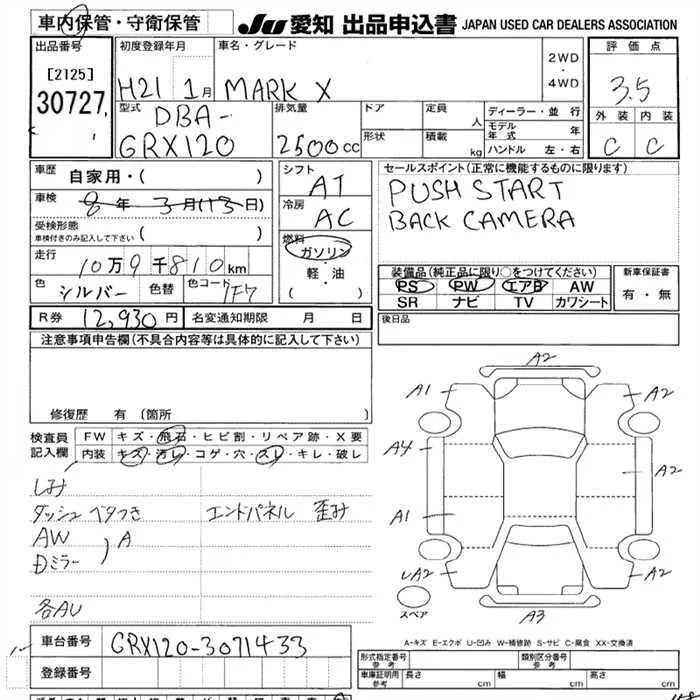 車内保管・守衛保管 JU 愛知 出品申込書 JAPAN USED CAR DEALERS ASSOCIATION
出品番号 初度登録年月 車名・グレード 評価点
[2125] 2WD・4WD
30727 H21 1月 MARK X 3.5
型式 排気量 ドア 定員 人 ディーラー・並行 外装 内装
DBA- モデル年式 年
GRX120 2500cc 形状 積載 kg ハンドル 左・右 C C
車歴 自家用・( ) シフト AT セールスポイント(正常に機能するものに限ります)
車検 8年3月(13日) 冷房 AC PUSH START
受検形態 車検付きのみ記入して下さい ( ) BACK CAMERA
燃料 ガソリン・軽・油 ( )
走行 10万9千810km
装備品(純正品に限り○をつけてください) 新車保証書
色 シルバー 色替 色コード 1F7 PS PW エアB AW 有・無
SR ナビ TV カワシート
R券 12,930円 名変通知期限 月 日 後日品
注意事項申告欄(不具合内容等は具体的に記入して下さい)
修復歴 有 (箇所 )
検査員記入欄 FW キズ・飛石・ヒビ割・リペア跡・X要
内装 キズ・汚レ・コゲ・穴・スレ・キレ・破レ
しみ
ダッシュ ベタつき エンドパネル 歪み
AW
Dミラー ) A
各AU
A2
A1 A2
A4 A2
A1
A2 A2
スペア A3
A-キズ E-エクボ U-凹み W-補修跡 S-サビ C-腐食 XX-交換済
車台番号 GRX120-3071433
登録番号
形式指定番号 参考 類別区分番号 参考
車庫証明用 参考 長さ cm 幅 cm 高さ cm